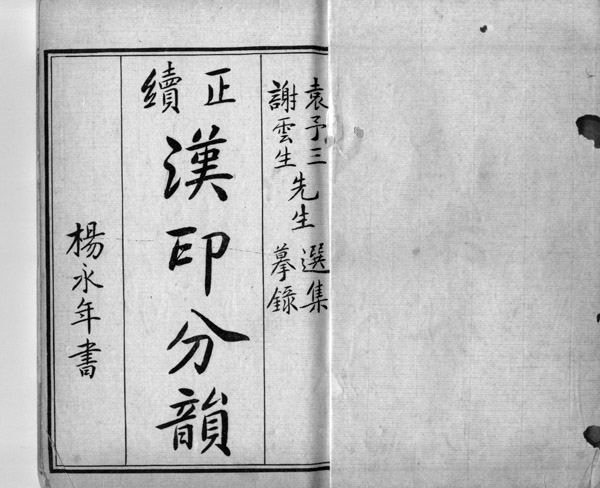 袁予三
謝雲生
先生
選集
摹錄
正續
漢印分韻
楊永年書